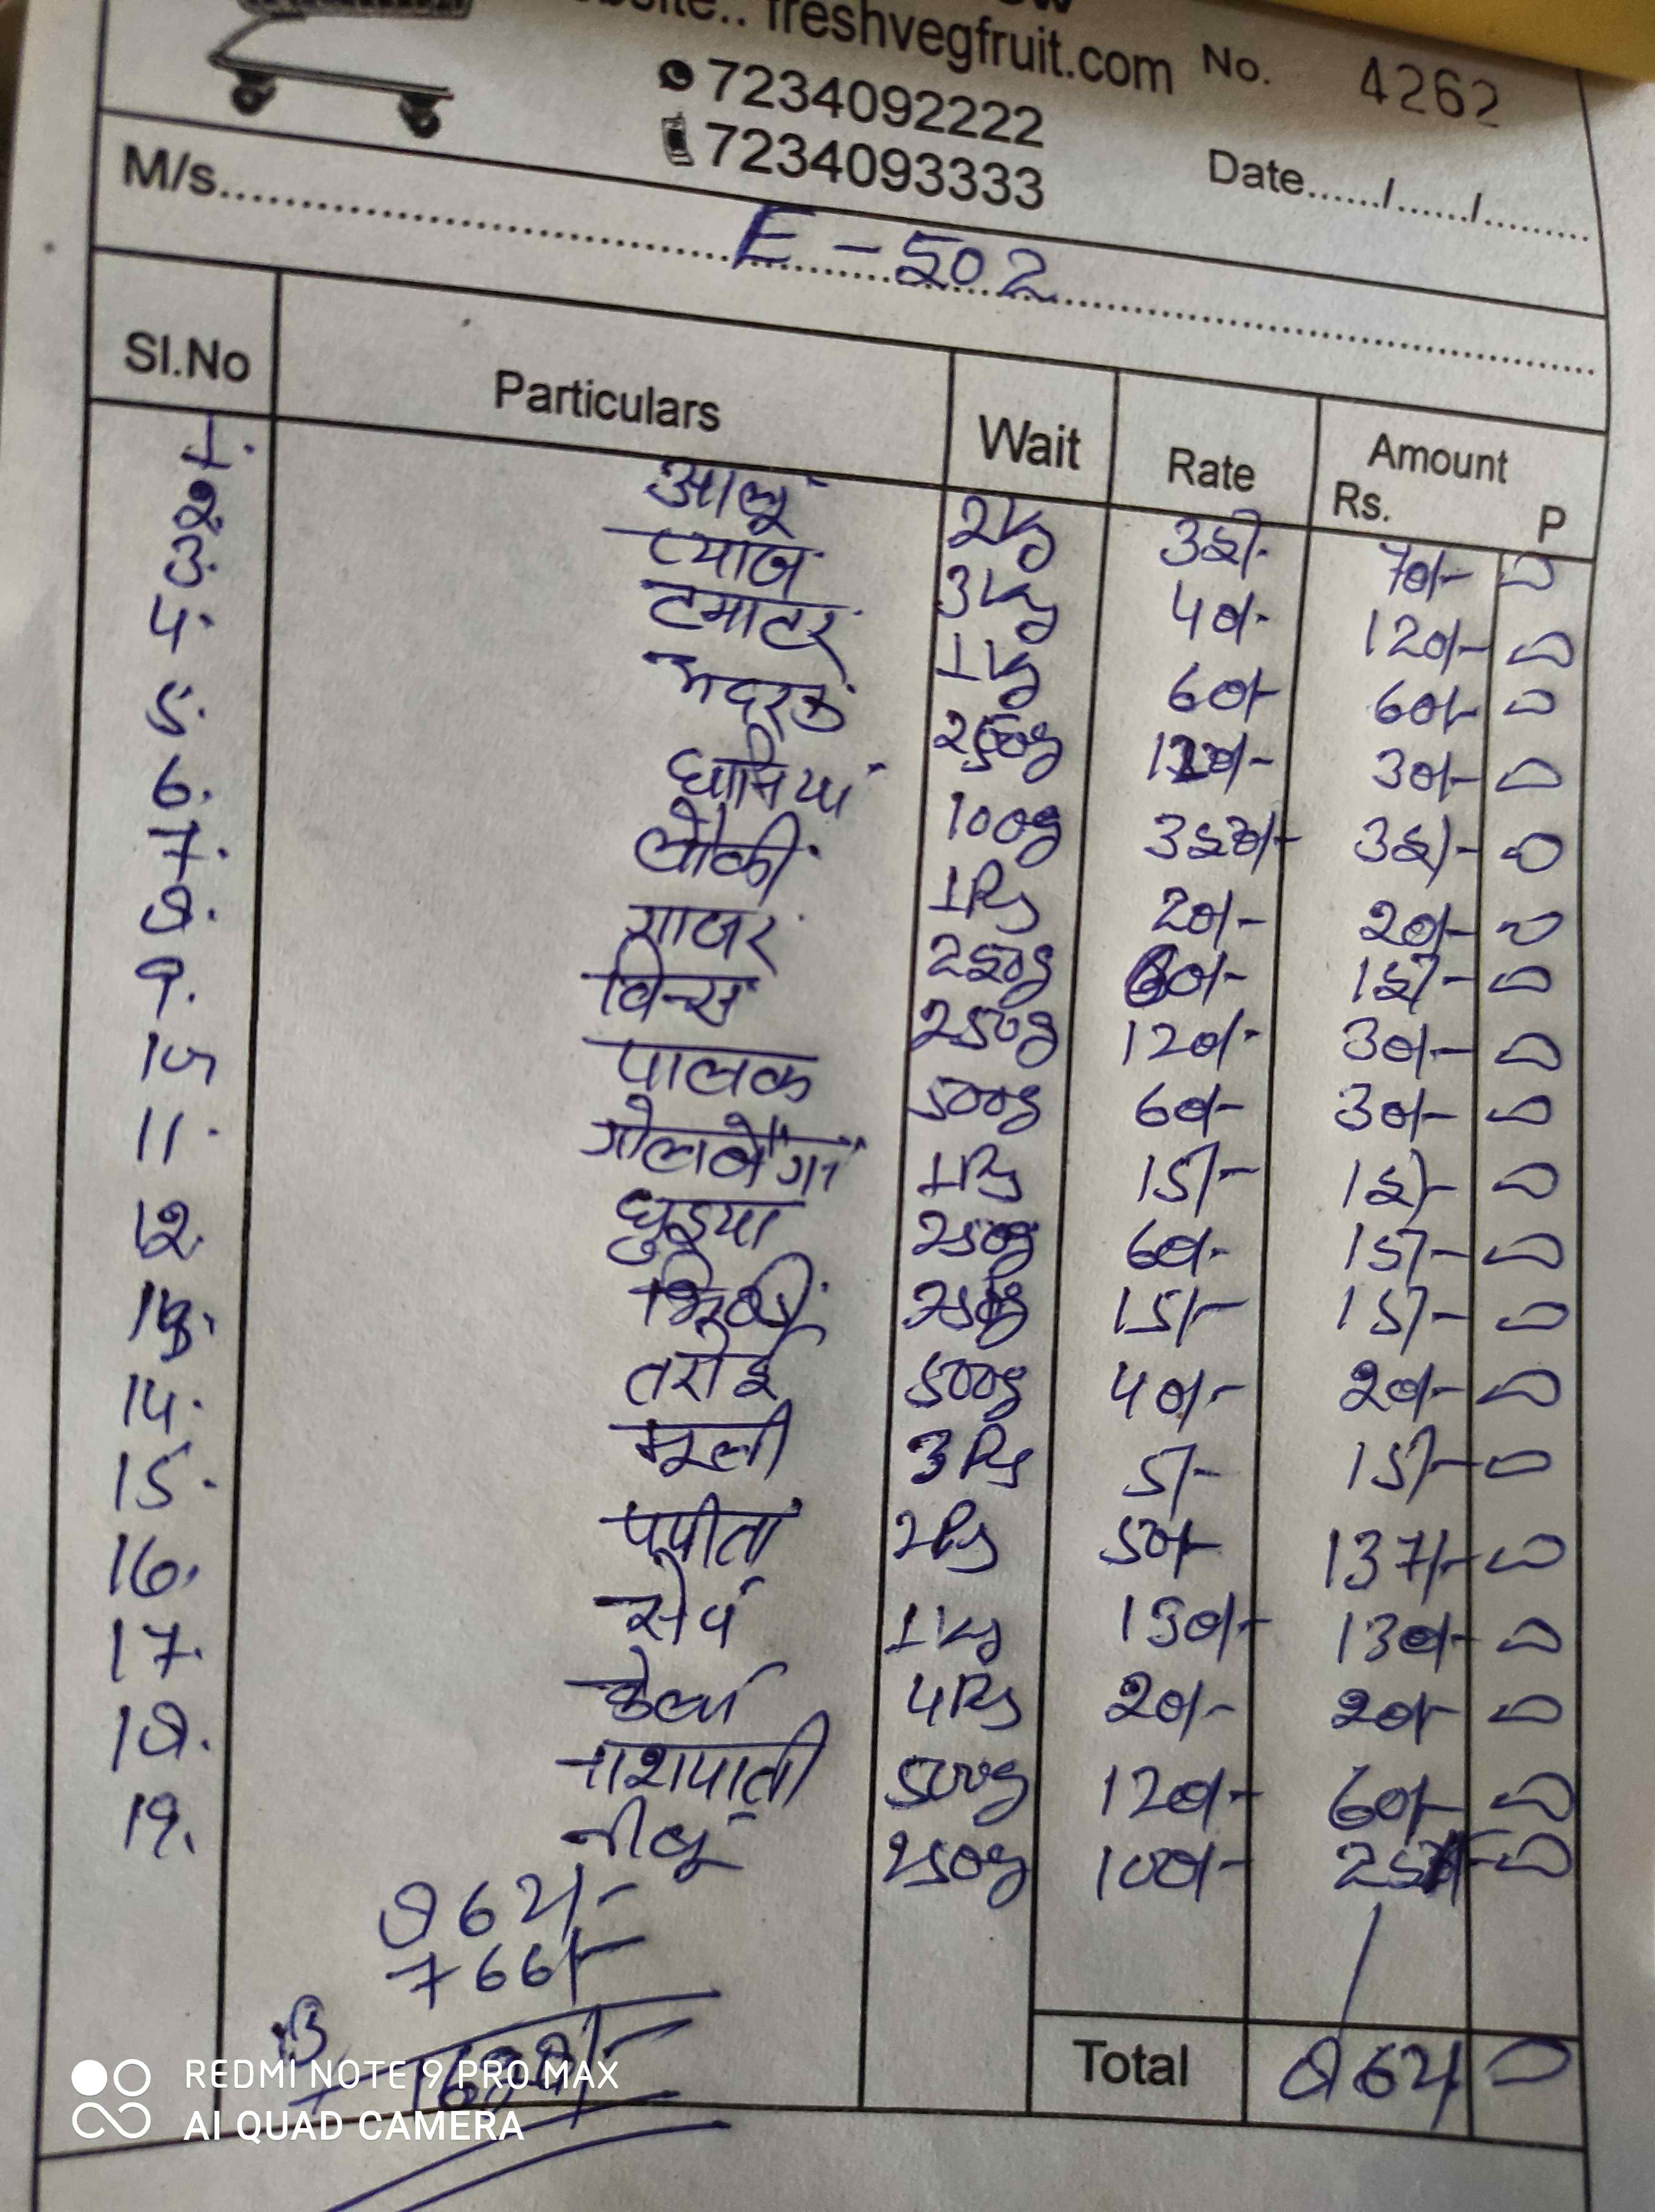 freshvegfruit.com No. 4262
7234092222
7234093333
Date....../....../.........
M/s. E-502
Sl.No Particulars Wait Rate Amount
Rs. P
1. आलू 2kg 35/- 70/- 0
2. प्याज 3kg 40/- 120/- 0
3. टमाटर 1kg 60/- 60/- 0
4. अदरक 250g 120/- 30/- 0
5. धनिया 100g 350/- 35/- 0
6. लौकी 1Ps 20/- 20/- 0
7. गाजर 250g 60/- 15/- 0
8. विन्स 250g 120/- 30/- 0
9. पालक 500g 60/- 30/- 0
10 गोलबैगन 1Ps 15/- 15/- 0
11. घुइया 250g 60/- 15/- 0
12. भिण्डी 250g 15/- 15/- 0
13. तरोई 500g 40/- 20/- 0
14. मूली 3Ps 5/- 15/- 0
15. पपीता 2Ps 50/- 137/- 0
16. सेव 1kg 130/- 130/- 0
17. केला 4Ps 20/- 20/- 0
18. नाशपाती 500g 120/- 60/- 0
19. नीबू 250g 100/- 25/- 0
862/-
+766/-
1628/-
Total 862/- 0
REDMI NOTE 9 PRO MAX
AI QUAD CAMERA